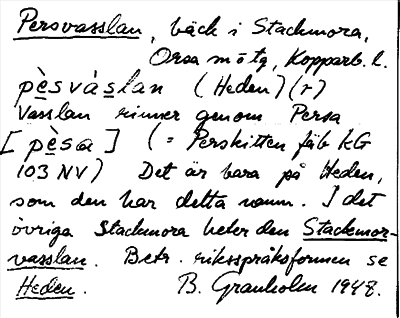 Persvasslan, bäck i Stackmora,
Orsa m o tg, Kopparb. l.
pèsvàslan (Heden) (r)
Vasslan rinner genom Persa
[pèsa] (= Perskitten fäb KG
103 NV) Det är bara på Heden,
som den har detta namn. I det
övriga Stackmora heter den Stackmor-
vasslan. Betr. riksspråksformen se
Heden. B. Granholm 1948.